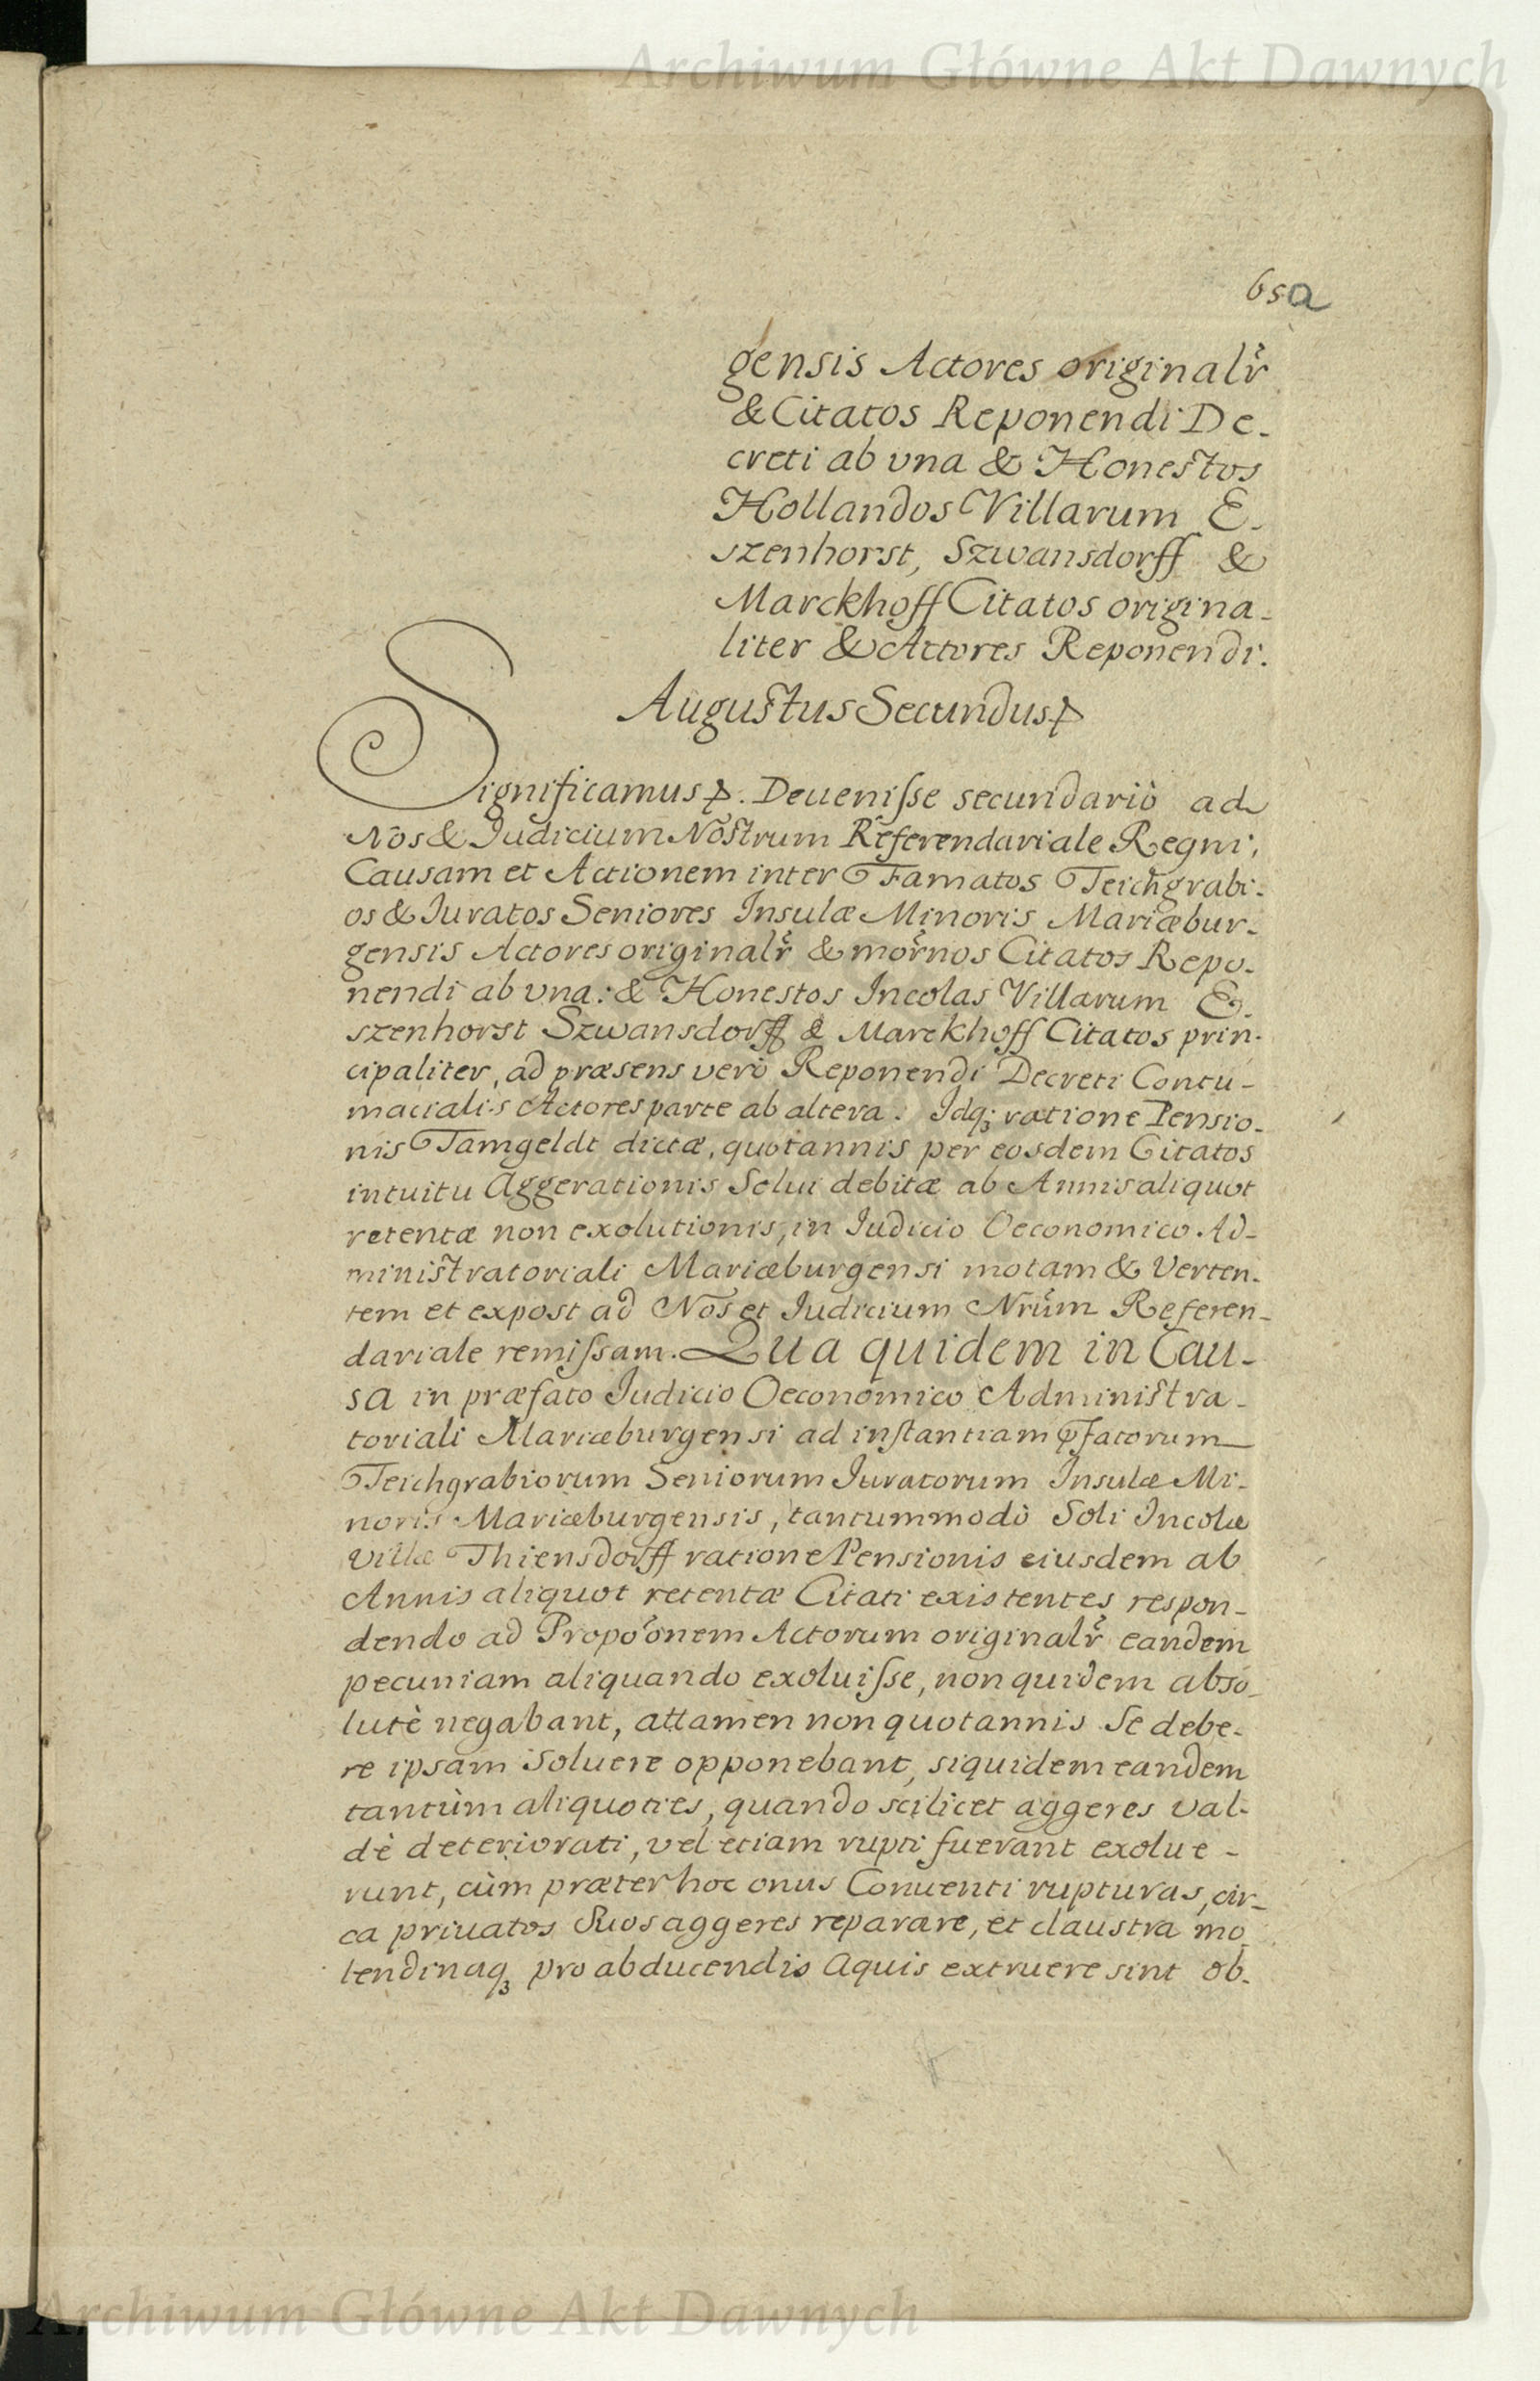 Archiwum Główne Akt Dawnych
65a
gensis Actores originalr̃
& Citatos Reponendi De-
creti ab vna & Honestos
Hollandos Villarum E-
szenhorst, Szwansdorff &
Marckhoff Citatos origina-
liter & Actores Reponendi.
Augustus Secundus
Significamus. Deuenisse secundariò ad
Nos & Iudicium Nostrum Referendariale Regni,
Causam et Actionem inter Famatos Teichgrabi-
os & Iuratos Seniores Insulæ Minoris Mariæbur-
gensis Actores originalr̃ & mor̃nos Citatos Repo-
nendi ab vna: & Honestos Incolas Villarum E-
szenhorst Szwansdorff & Marckhoff Citatos prin-
cipaliter, ad præsens verò Reponendi Decreti Contu-
macialis Actores parte ab altera. Idq; ratione Pensio-
nis Tamgeldt dictæ, quotannis per eosdem Citatos
intuitu Aggerationis Solui debitæ ab Annis aliquot
retentæ non exolutionis, in Iudicio Oeconomico Ad-
ministratoriali Mariæburgensi motam & Verten-
tem et expost ad Nos et Iudicium Nrũm Referen-
dariale remissam. Qua quidem in Cau-
sa in præfato Iudicio Oeconomico Administra-
toriali Mariæburgensi ad instantiam p̃fatorum
Teichgrabiorum Seniorum Iuratorum Insulæ Mi-
noris Mariæburgensis, tantummodò Soli Incolæ
villæ Thiensdorff ratione Pensionis eiusdem ab
Annis aliquot retentæ Citati existentes respon-
dendo ad Propõonem Actorum originalr̃ eandem
pecuniam aliquando exoluisse, non quidem abso-
lutè negabant, attamen non quotannis Se debe-
re ipsam Soluere opponebant, siquidem eandem
tantùm aliquoties, quando scilicet aggeres val-
dè deteriorati, vel etiam rupti fuerant exolue-
runt, cùm præter hoc onus Conuenti rupturas, cir-
ca priuatos Suos aggeres reparare, et claustra mo-
lendinaq; pro abducendis Aquis extruere sint ob-
Archiwum Główne Akt Dawnych